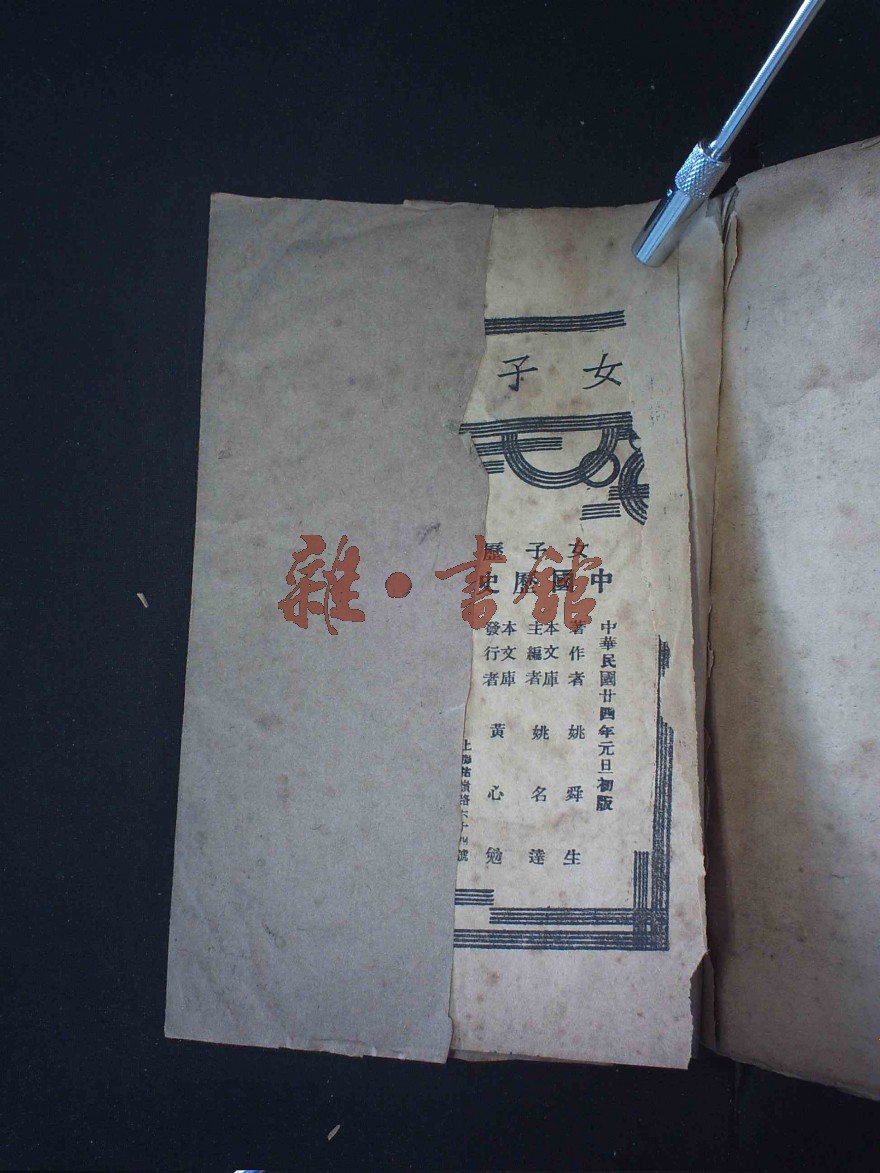 女子
女子歷
中國歷史
中華民國廿四年元旦初版
著作者 姚舜生
本文庫主編者 姚名達
本文庫發行者 黃心勉
雜·書館